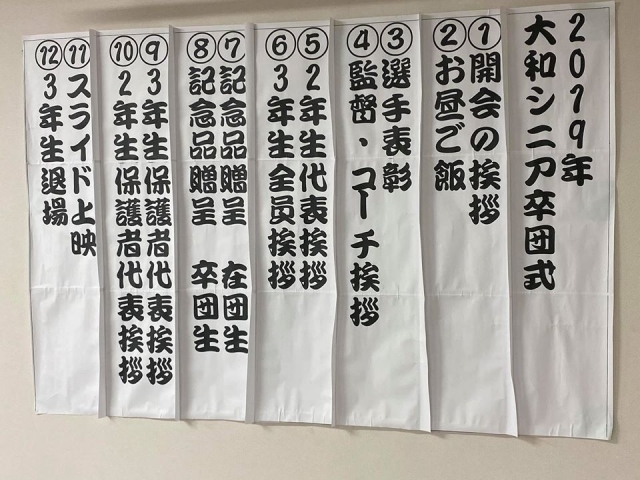 2019年
大和シニア卒団式
①開会の挨拶
②お昼ご飯
③選手表彰
④監督・コーチ挨拶
⑤2年生代表挨拶
⑥3年生全員挨拶
⑦記念品贈呈 在団生
⑧記念品贈呈 卒団生
⑨3年生保護者代表挨拶
⑩2年生保護者代表挨拶
⑪スライド上映
⑫3年生退場